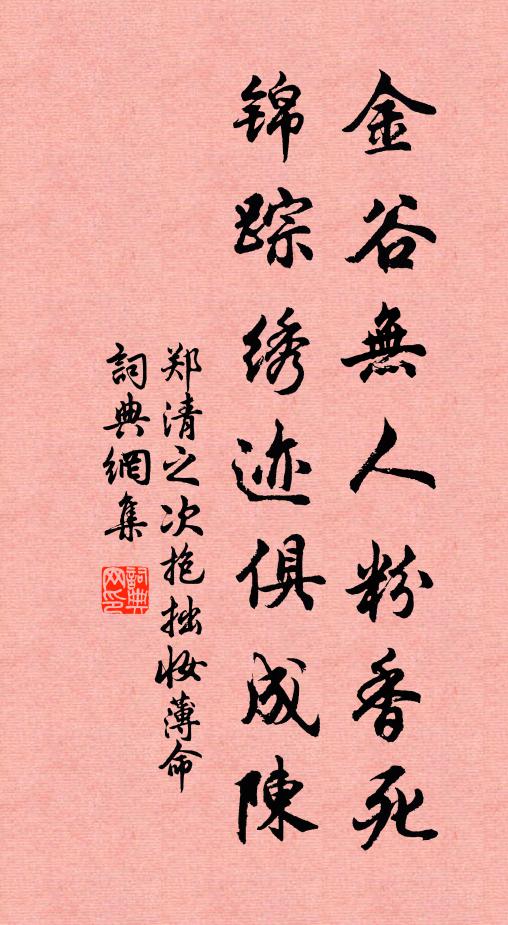 金谷無人粉香死
锦踪绣迹俱成陳
郑清之次抱拙妆薄命
詞典網集
詞典网印